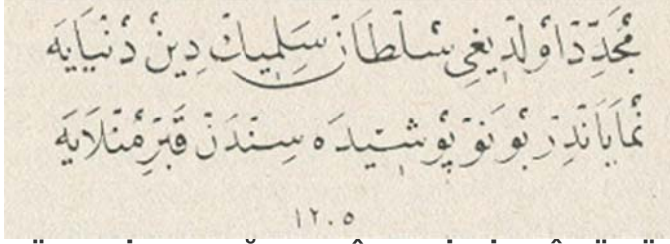 مُجَدِّدْ اوْلدِيغِى سُلْطَانْ سَلِيمِكْ دِينْ دُنْيَايَه
نُمَايَانْدِرْ بُو نَوْ پُوشِيدَه سِنْدَنْ قَبْرِ مُنْلَايَه
١٢٠٥